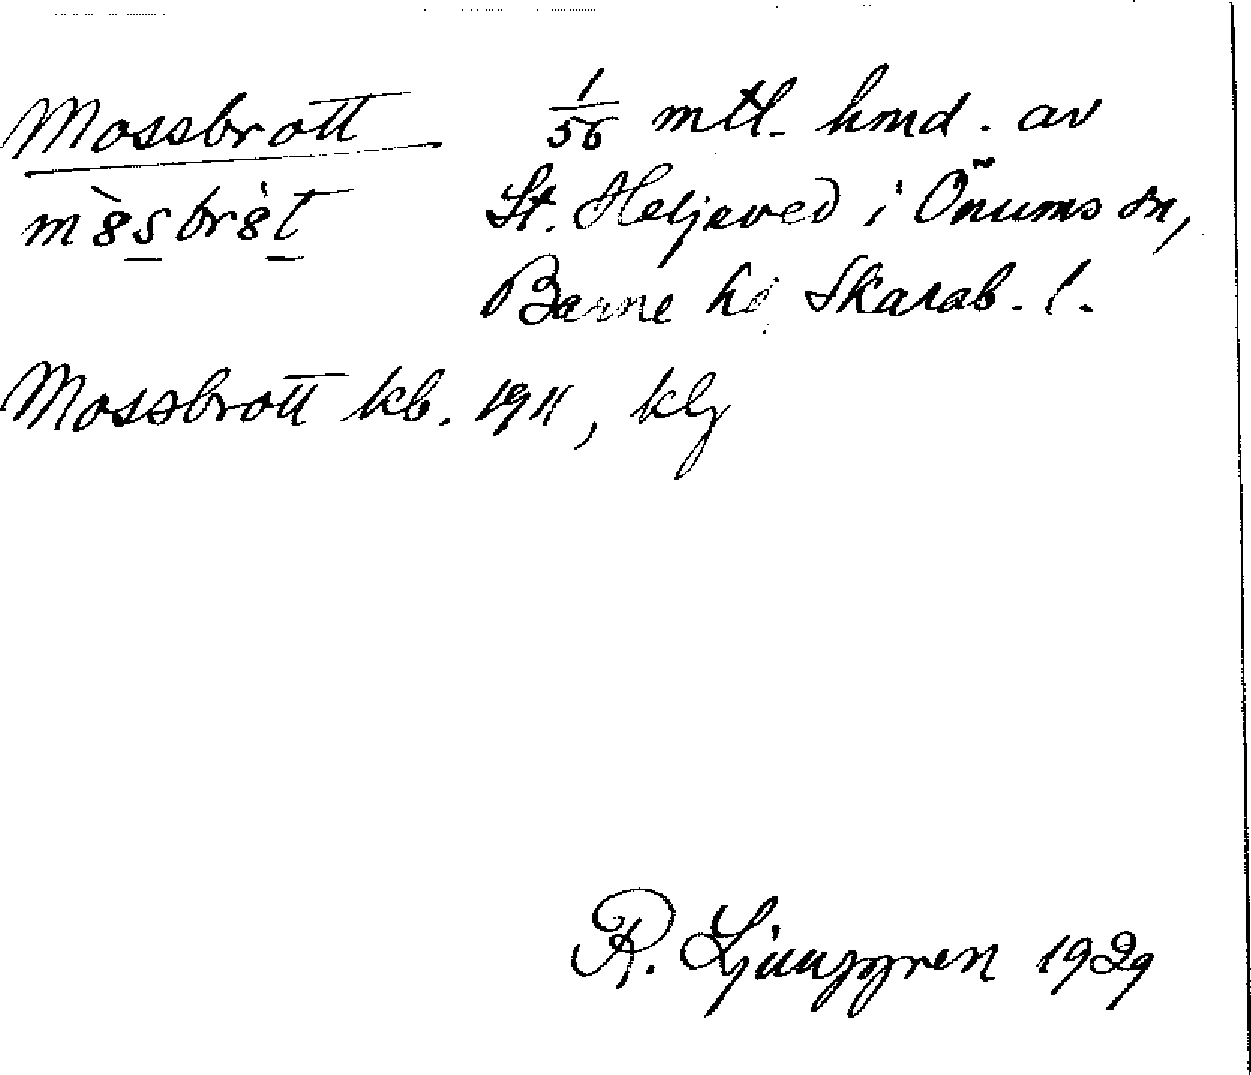 Mossbrott 1/56 mtl. hmd. av
St. Heljeved i Önums sn,
Barne hd Skarab. l.
Mossbrott kb. 1911, klg
R. Ljunggren 1929